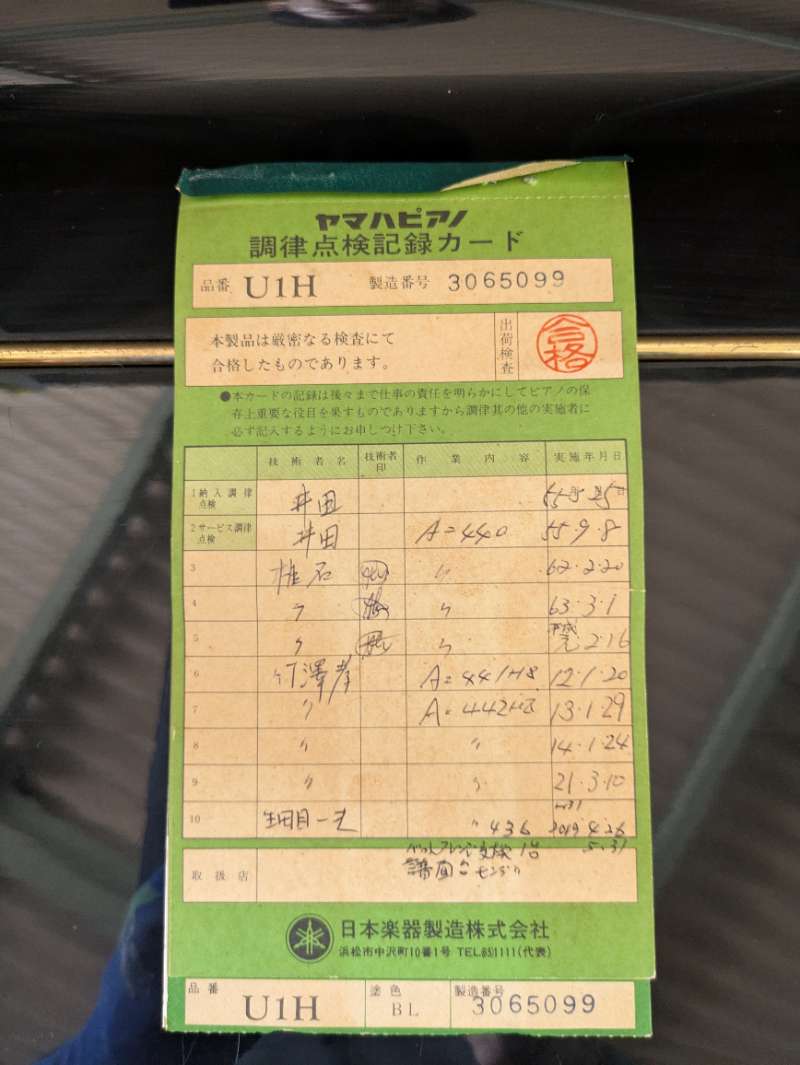 ヤマハピアノ
調律点検記録カード
品番 U1H 製造番号 3065099
本製品は厳密なる検査にて
合格したものであります。
出荷検査
合格
●本カードの記録は後々まで仕事の責任を明らかにしてピアノの保
存上重要な役目を果すものでありますから調律其の他の実施者に
必ず記入するようにお申しつけ下さい。
技術者名 技術者印 作業内容 実施年月日
1 納入調律点検 井田
2 サービス調律点検 井田 A=440 55.9.8
3 椎石 〃 62.2.20
4 〃 〃 63.3.1
5 〃 〃 平成元 2.16
6 竹澤孝 A=441 12.1.20
7 〃 A=442 13.1.29
8 〃 〃 14.1.24
9 〃 〃 21.3.10
10 〃 436 H31 2019 4.26
5.31
取扱店
日本楽器製造株式会社
浜松市中沢町10番1号 TEL(65)1111(代表)
品番 U1H 塗色 BL 製造番号 3065099